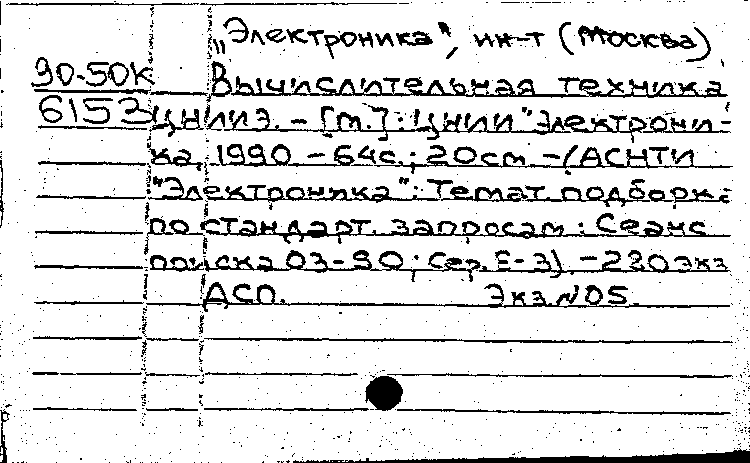 „Электроника“, ин-т (Москва)
90-50к Вычислительная техника
6153 ЦНИИЭ. – [М.] : ЦНИИ "Электрони-
ка, 1990. – 64с. ; 20см – (АСНТИ
"Электроника" : Темат. подборка
по стандарт. запросам : Сеанс
поиска 03-90 ; Сер. Е-3). – 220экз
ДСП. Экз. №05.